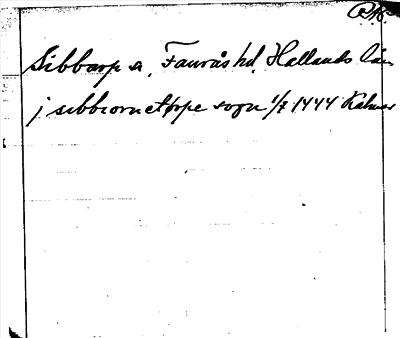 P.K.
Sibbarp sn, Faurås hd, Hallands län
j sibbiornetørpe sogn 1/7 1444 Kalmar